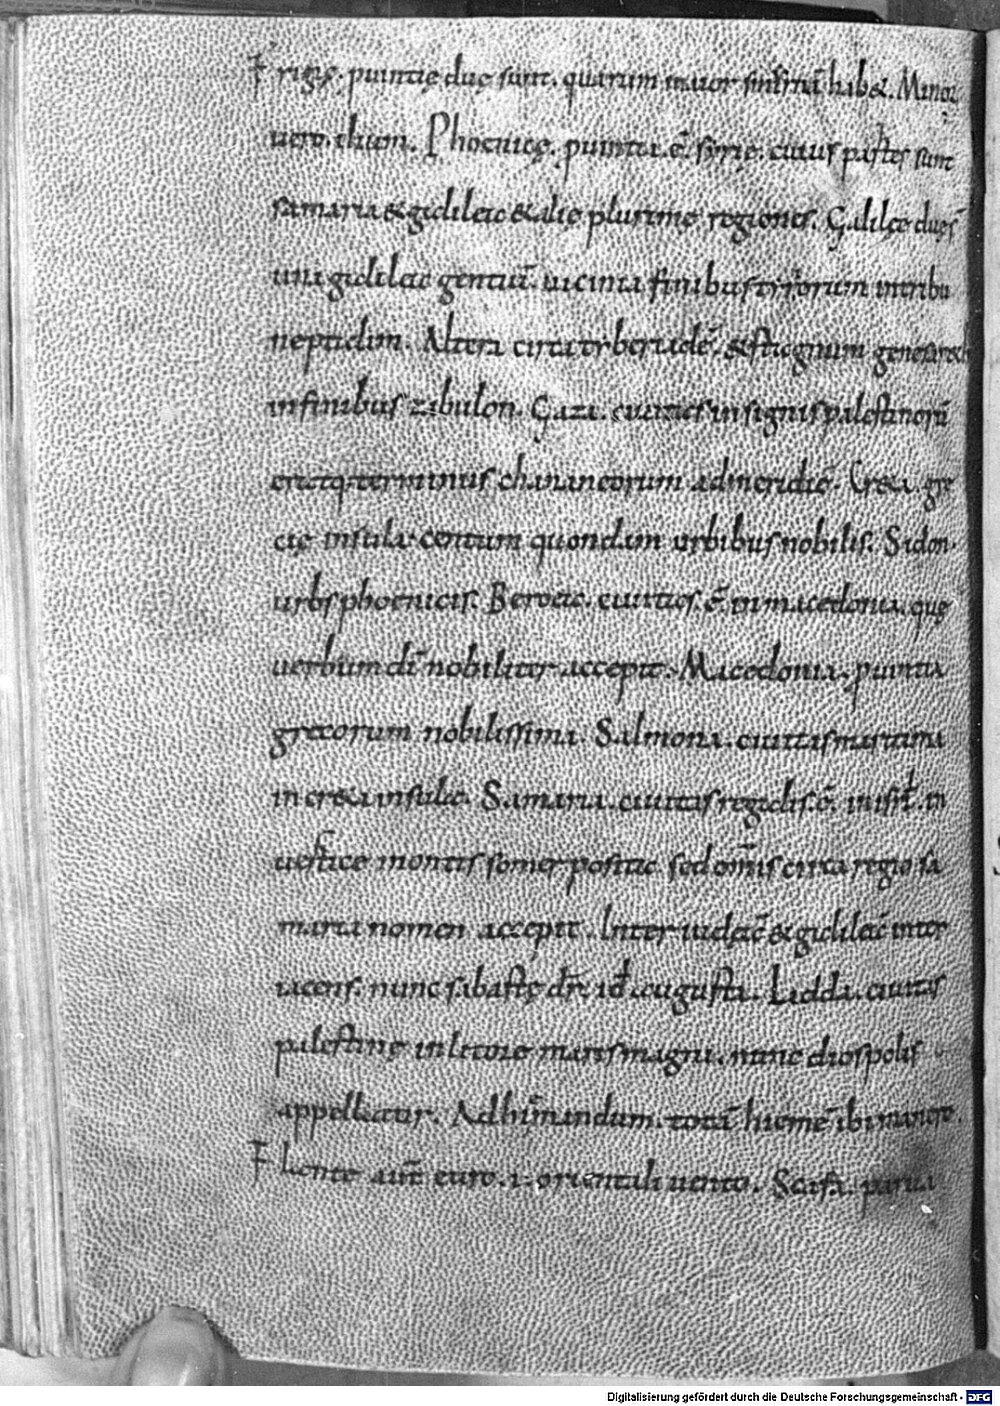 Frigię. puintię duę sunt. quarum maior smirnā habet. Minor
uero. ilium. Phoenicę. puintia. ē. syrię. cuius partes sunt
samaria & galileae & alię plurimę regiones. Galilęe duę s̄
una galileae gentiū. uicina finibus tyriorum in tribu
neptalim. Altera circa tyberiadē. & stagnum genesareth
in finibus zabulon. Gaza. ciuitas insignis palestinorū
eratq; terminus chananeorum ad meridiē. Creta. grę
cię insula. centum quondam urbibus nobilis. Sidon.
urbs phoenicis. Beroeae. ciuitas. ē. in macedonia. quę
uerbum dī nobiliter accepit. Macedonia. puintia
grecorum nobilissima. Salmona. ciuitas maritima
in creta insula. Samaria. ciuitas regalis. ē. in isrl. in
uertice montis somer posita. sed omīs circa regio sa
maria nomen accepit. Inter iudeā & galileā inter
iacens. nunc sabastę dr. id. augusta. Lidda. ciuitas
palestinę in litore maris magni. nunc diospolis
appellatur. Ad hymandum. totā hiemē ibi manere.
Flante aut̄ euro. i. orientali uento. Scafa. parua